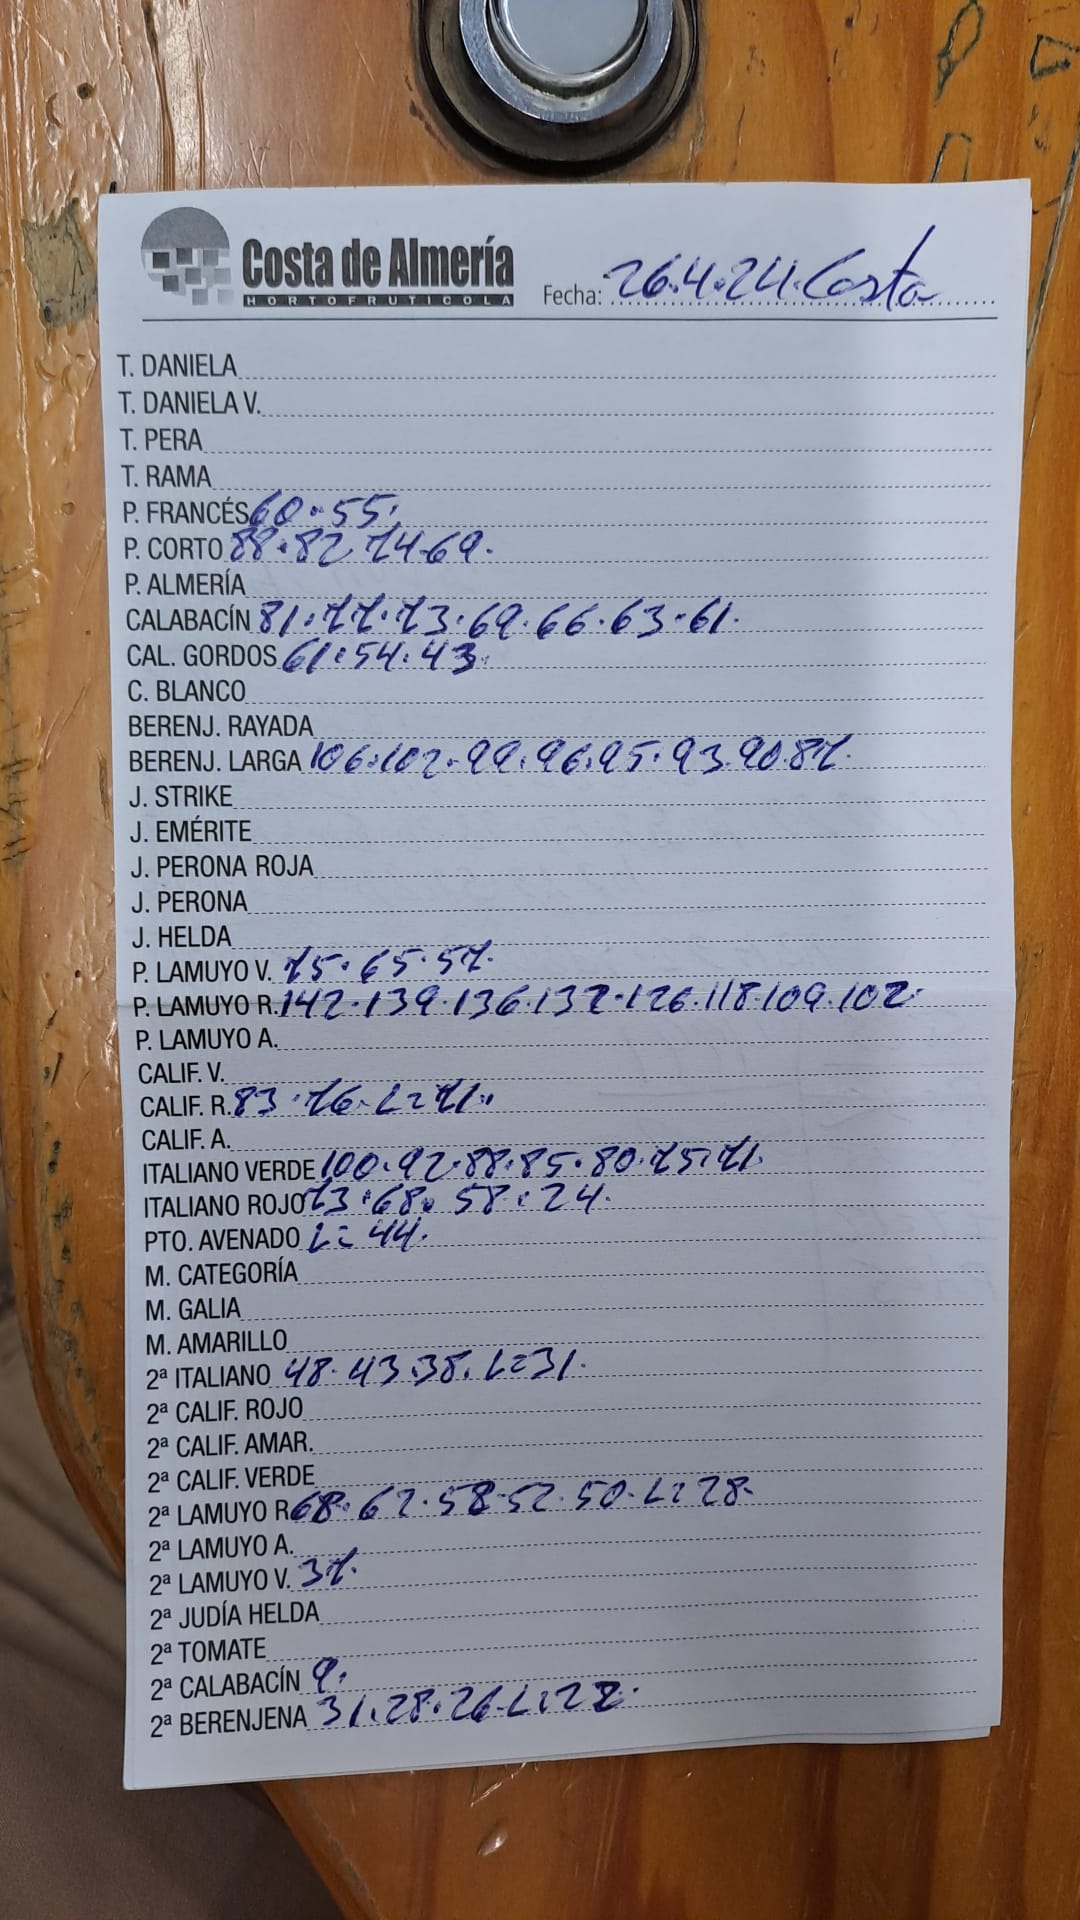 Costa de Almería
HORTOFRUTICOLA
Fecha: 26.4.24. Costa
T. DANIELA
T. DANIELA V.
T. PERA
T. RAMA
P. FRANCÉS 60.55.
P. CORTO 88.82 74-69.
P. ALMERÍA
CALABACÍN 81.77.73.69.66.63.61.
CAL. GORDOS 61.54.43.
C. BLANCO
BERENJ. RAYADA
BERENJ. LARGA 106.102.99.96.95.93.90.87.
J. STRIKE
J. EMÉRITE
J. PERONA ROJA
J. PERONA
J. HELDA
P. LAMUYO V. 75.65.57.
P. LAMUYO R. 142.139.136.132.126.118.109.102.
P. LAMUYO A.
CALIF. V.
CALIF. R. 83.76.L=71.
CALIF. A.
ITALIANO VERDE 100.92.88.85.80.75.71.
ITALIANO ROJO 73.68.58.24.
PTO. AVENADO L=44.
M. CATEGORÍA
M. GALIA
M. AMARILLO
2ª ITALIANO 48.43.38.L=31.
2ª CALIF. ROJO
2ª CALIF. AMAR.
2ª CALIF. VERDE
2ª LAMUYO R 68.62.58.52.50.L=28.
2ª LAMUYO A.
2ª LAMUYO V. 37.
2ª JUDÍA HELDA
2ª TOMATE
2ª CALABACÍN 9.
2ª BERENJENA 31.28.26.L.22.